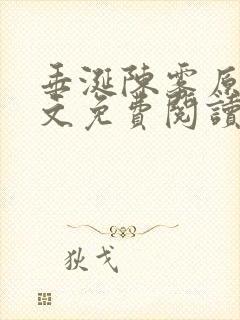 垂涎陳雾原
文免費閱讀
狄戈